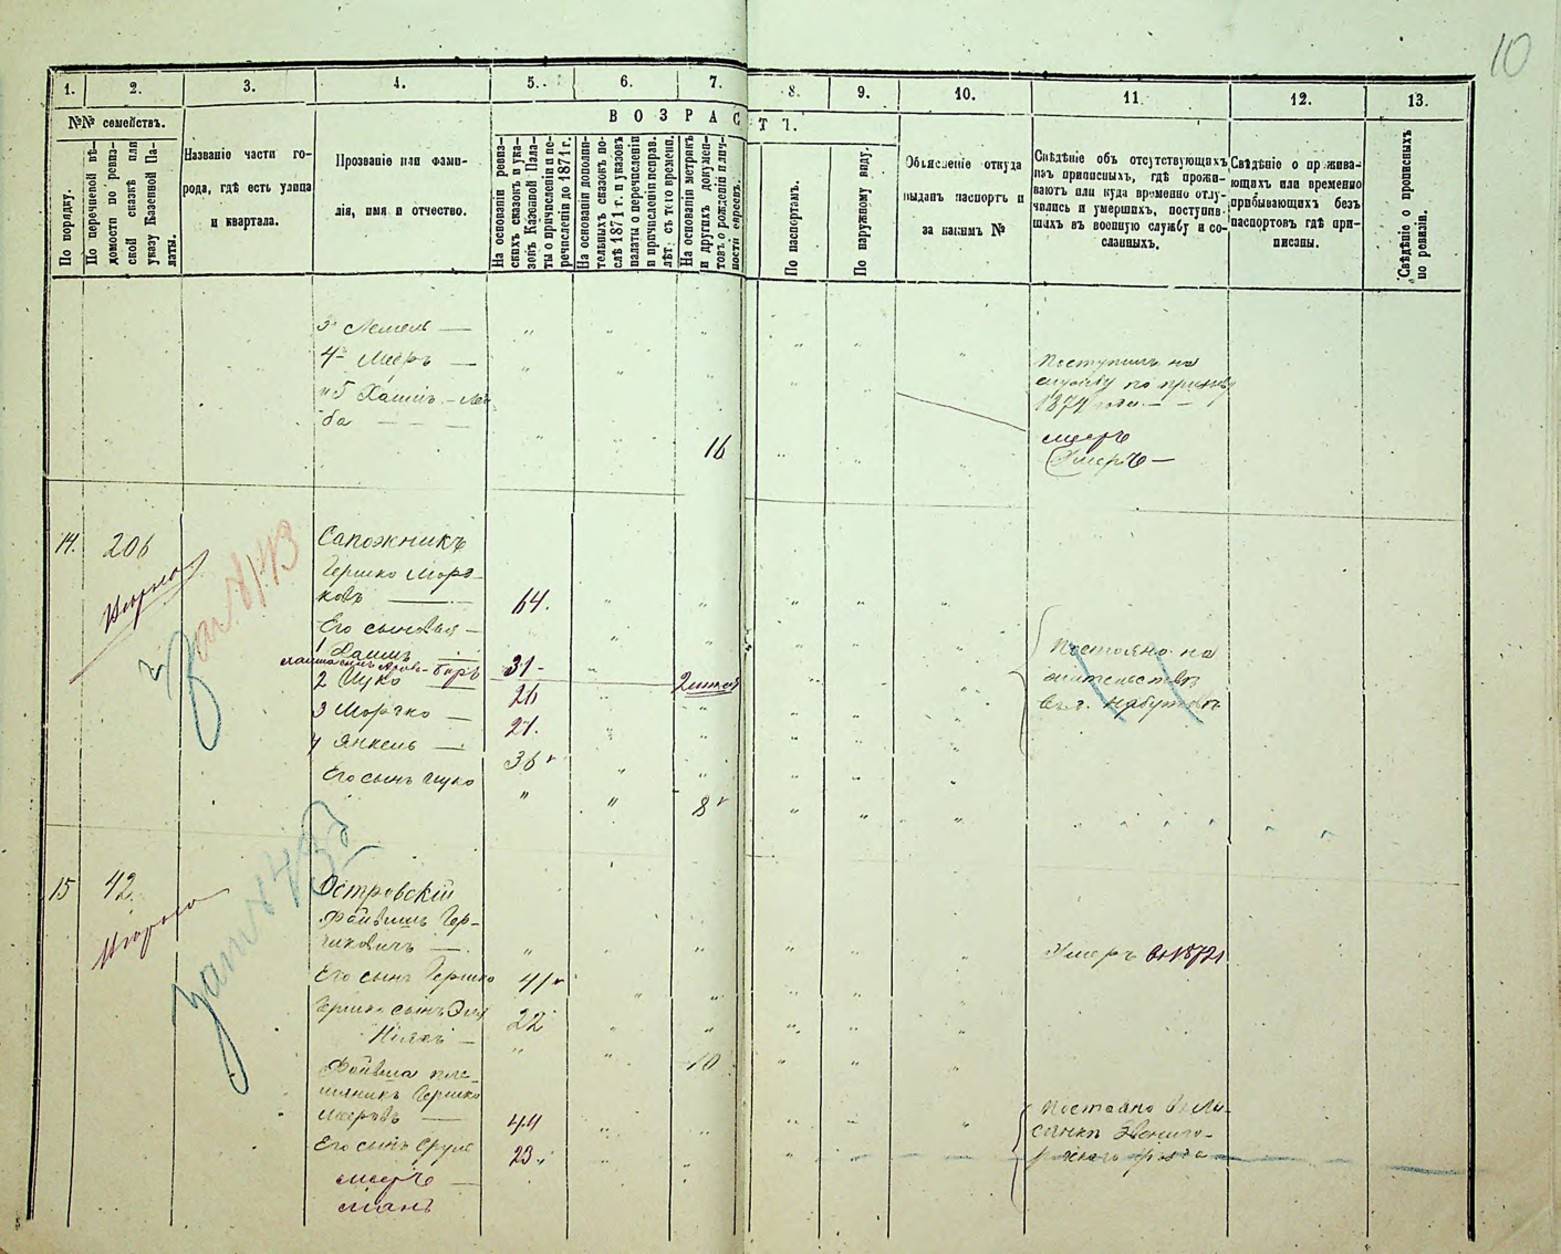 10
1. 2. 3. 4. 5. 6. 7. 8. 9. 10. 11. 12. 13.
№№ семействъ.
ВОЗРАСТЪ.
По порядку.
По перечневой вѣ-
домости по ревиз-
ской сказкѣ или
указу Казенной Па-
латы.
Названіе части го-
рода, гдѣ есть улица
и квартала.
Прозваніе или фами-
лія, имя и отчество.
На основаніи ревиз-
скихъ сказокъ и ука-
зовъ Казенной Пала-
ты о причисленіи и пе-
речисленіи до 1871 г.
На основаніи дополни-
тельныхъ сказокъ по-
слѣ 1871 г. и указовъ
палаты о перечисленіи
и причисленіи исправ.
лѣт. съ того времени.
На основаніи метрикъ
и другихъ докумен-
товъ о рожденіи и лич-
ности евреевъ.
По паспортамъ.
По наружному виду.
Объясненіе откуда
выданъ паспортъ и
за какимъ №
Свѣдѣніе объ отсутствующихъ
изъ приписныхъ, гдѣ прожи-
ваютъ или куда временно отлу-
чились и умершихъ, поступив-
шихъ въ военную службу и со-
сланныхъ.
Свѣдѣніе о прожива-
ющихъ или временно
прибывающихъ безъ
паспортовъ гдѣ при-
писаны.
Свѣдѣніе о прописныхъ
по ревизіи.
3 Лемель —
4 Мееръ —
5 Хаимъ-Лей-
ба — — —
16
Поступилъ на
службу по призыву
1874 года —
Умеръ —
14. 206
Сапожникъ
Гершко Морд-
ковъ — 64.
Его сыновья —
1 Хаимъ — 31 -
2 Ицко — 26
3 Мортко — 21.
4 Янкель — 36
Его сынъ Ицко 8
Постоянно на
жительствѣ
15 42.
Островскій
Файвишъ Гер-
шковичъ —
Умеръ въ 1872 г.
Его сынъ Гершко 41
Гершка сынъ 22
10
Файвиша пле-
мянникъ Гершко
Мееровъ — 44
Его сынъ Сруль 23
Постоянно въ Ли-
сянкѣ Звениго-